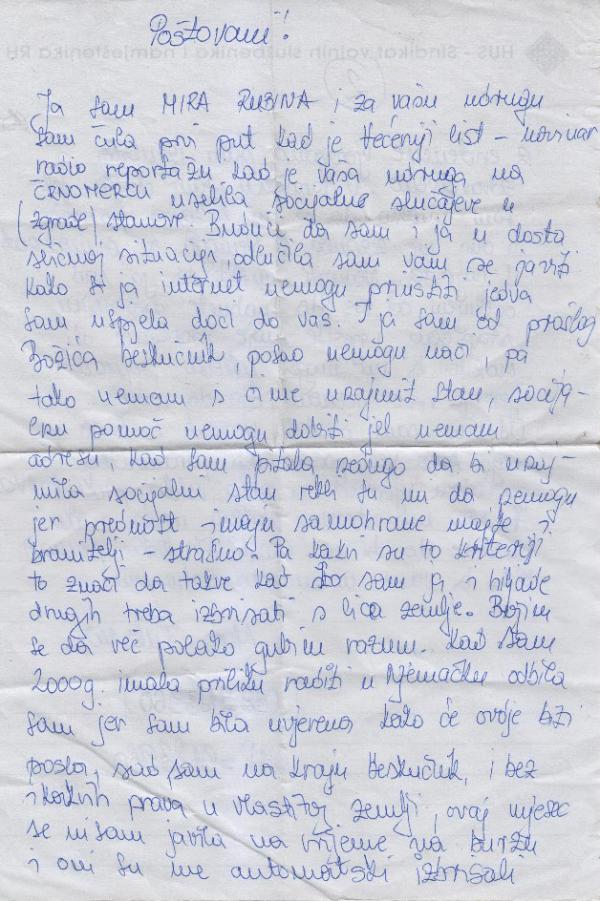 Poštovani!
HUS - Sindikat vojnih službenika i namještenika RH
Ja sam MIRA RUBINA i za vašu udrugu
sam čula prvi put kad je - 
radio reportažu kad je vaša udruga na
ČRNOMERCU uselila socijalne slučajeve u
(zgrade) stanove. Budući da sam i ja u dosta
sličnoj situaciji, odlučila sam vam se javiti
kako si ja internet nemogu priuštiti jedva
sam uspjela doći do vas. I ja sam od prošlog
Božića beskućnik, posao nemogu naći, pa
tako nemam s čime unajmit stan, socija-
lnu pomoć nemogu dobiti jel nemam
adresu, kad sam pitala da bi unaj-
mila socijalni stan rekli su mi da nemogu
jer prednost imaju samohrane majke i
branitelji - strašno. Pa kakvi su to kriteriji
to znači da takve kao što sam ja i hiljade
drugih treba izbrisati s lica zemlje. Bojim
se da već polako gubim razum. Kad sam
2000g. imala priliku raditi u Njemačku odbila
sam jer sam bila uvjerena kako će ovdje biti
posla, sad sam na kraju beskućnik, i bez
ikakvih prava u vlastitoj zemlji, ovaj mjesec
se nisam javila na vrijeme na burzu
i oni su me automatski izbrisali